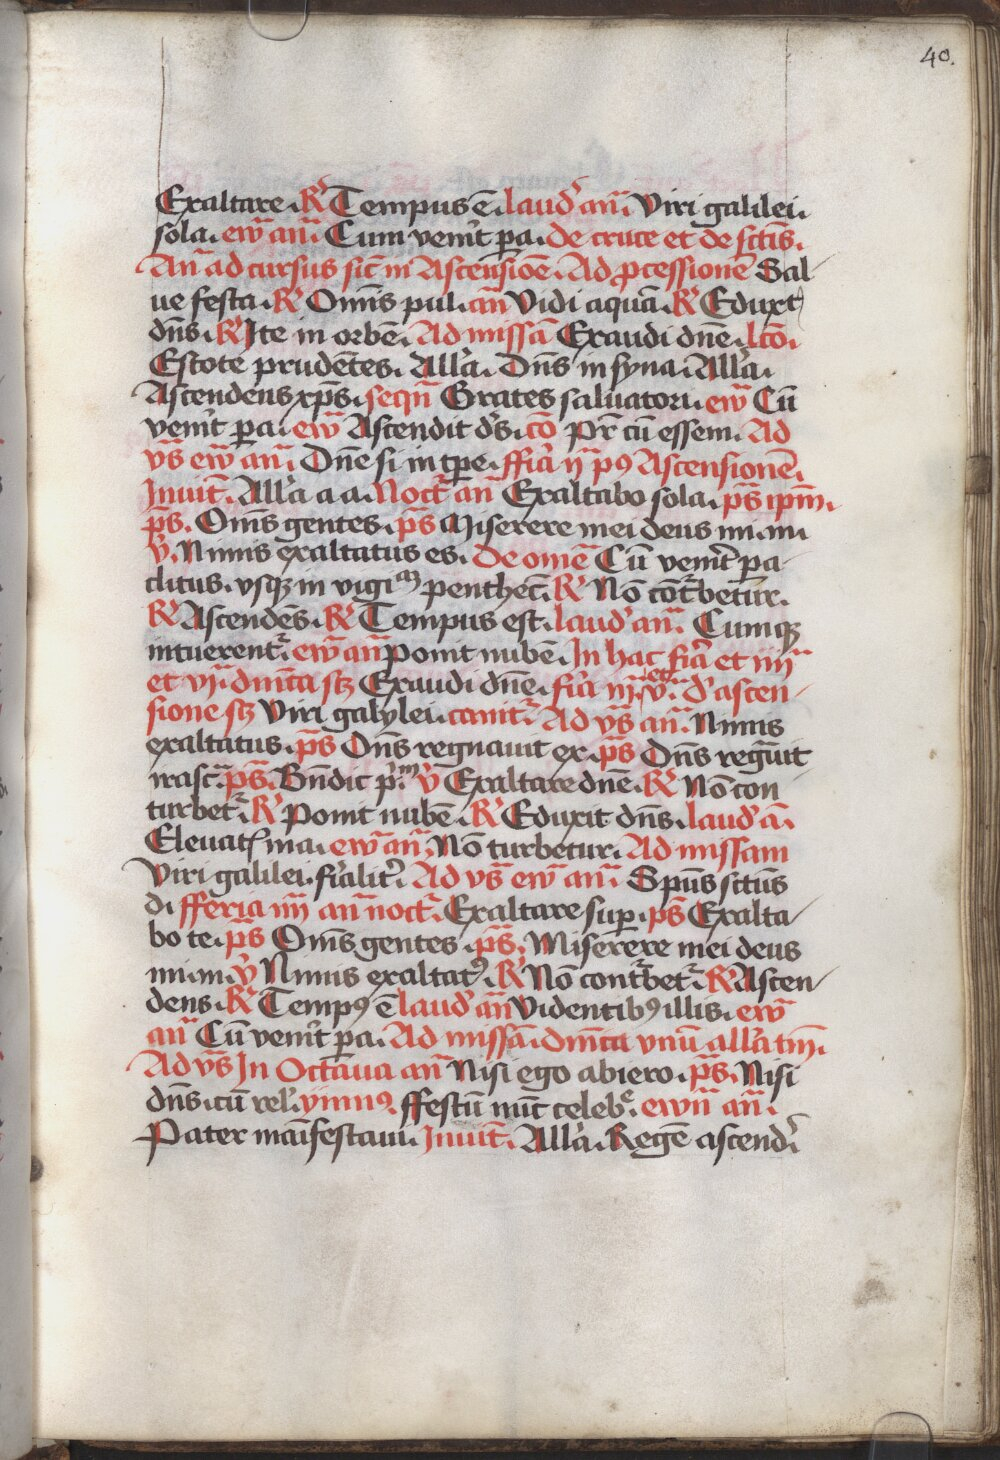 40.
Exaltare. R̕ Tempus ē. laud̕ an̄. Viri galilei.
sola. ew̄ an̄. Cum venit̕ pa. de cruce et de sctīs.
An̄ ad cursus sic̄ in Ascensiōe. Ad ꝓcessionē Sal
ue festa. R̕ Om̄s pul. an̄ Vidi aquā. R̕ Eduxt
dn̄s. R̕ Ite in orbē. Ad missā Exaudi dn̄e. lc̄o.
Estote prudētes. All̕a. Dn̄s in syna. All̕a.
Ascendens xp̄s. seqn̄ Grates saluatori. ew̄ Cū
venit̕ pa. ew̄ Ascendit d̕s. cō Pr̄ cū essem. Ad
vs̄ ew̄ an̄. Dn̄e si in tp̄e. ffia̕ ij p9 Ascensionē.
Inuit̄. All̕a a a. Noct̄ an̄ Exaltabo sola. ps̄ ip̄m.
ps̄. Om̄s gentes. ps̄ Miserere mei deus mi. mi
v̄. Nimis exaltatus es. De om̄e Cū venit̕ pa
clitus. vsqꝫ in vigi penthec̄. R̕ Nō cōt̕betur.
R̕ Ascendēs. R̕ Tempus est. laud̕ an̄. Cumqꝫ
intuerent̕. ew̄ an̄ Ponit nubē. In hac fia̕ et iiij
et vj. dn̄ica sꝫ Exaudi dn̄e. fia̕ iij. et v̄. d̕ ascen
sione sꝫ Viri galylei. canit̕. Ad vs̄ an̄. Nimis
exaltatus. ps̄ Dn̄s regnauit ex. ps̄ Dn̄s regāuit
irasc̄. ps̄. Bn̄dic p̕.m v̄ Exaltare dn̄e. R̕ Nō con
turbet̕. R̕ Ponit nubē. R̕ Eduxit dn̄s. laud̕ ā.
Eleuat ma. ew̄ an̄. Nō turbetur. Ad missam
Viri galilei. fia̕lit̕. Ad vs̄ ew̄ an̄. Spūs sctūs
di fferia iiij an̄ noct̄. Exaltare sup. ps̄ Exalta
bo te. ps̄ Om̄s gentes. ps̄. Miserere mei deus
mi. mi. v̄ Nimis exaltat9. R̕ Nō cont̕bet̕. R̕ Ascen
dens. R̕ Temp9 ē laud̕ an̄ Videntib9 illis. ew̄
an̄ Cū venit̕ pa. Ad missā. dn̄ica vnū all̕a tm̄.
Ad vs̄ In Octāua an̄ Nisi ego abiero. ps̄. Nisi
dn̄s. cū rel̕. ymn9. ffestū nūc celeb̕e. ewn̄ an̄.
Pater māifestaui. Inuit̄. All̕a. Regē ascend̕